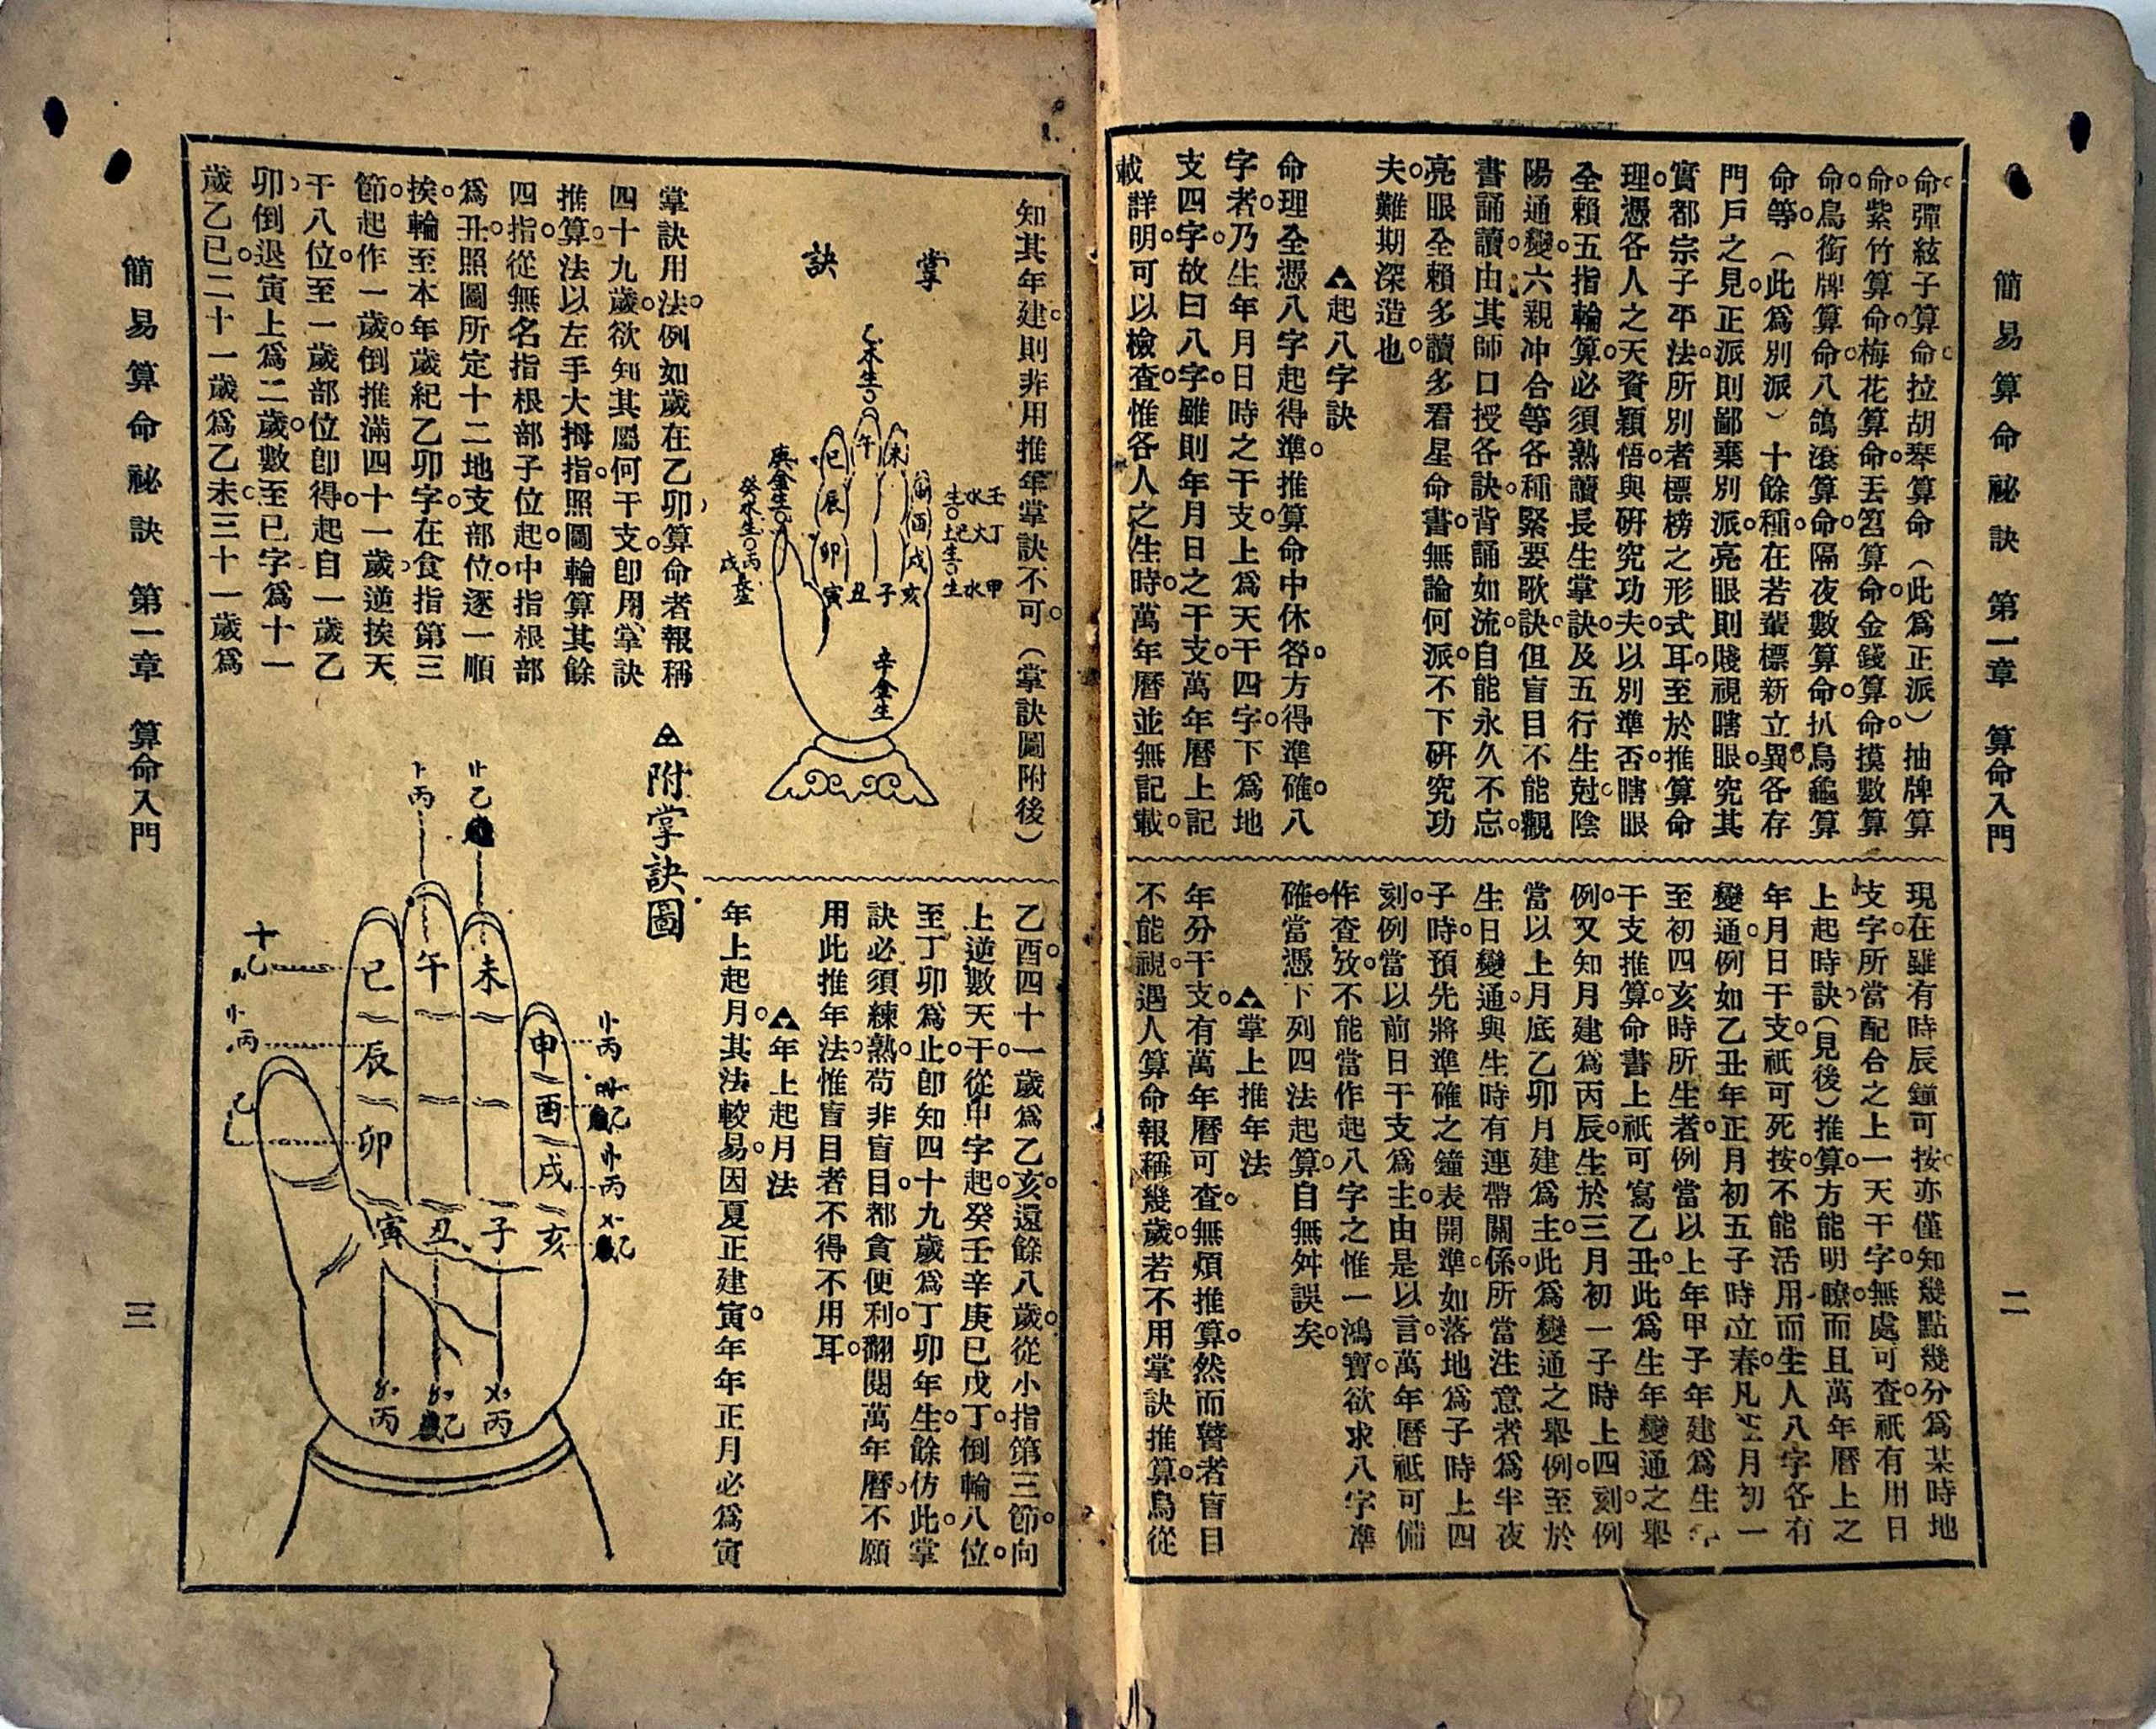 簡易算命祕訣 第一章 算命入門
二
命彈絃子算命拉胡琴算命（此爲正派）抽牌算
命紫竹算命梅花算命丟筶算命金錢算命摸數算
命鳥銜牌算命八鴿滾算命隔夜數算命扒烏龜算
命等（此爲別派）十餘種在若輩標新立異各存
門戶之見正派則鄙棄別派亮眼則賤視瞎眼究其
實都宗子平法所別者標榜之形式耳至於推算命
理憑各人之天資穎悟與研究功夫以別準否瞎眼
全賴五指輪算必須熟讀長生掌訣及五行生尅陰
陽通變六親冲合等各種緊要歌訣但盲目不能觀
書誦讀由其師口授各訣背誦如流自能永久不忘
亮眼全賴多讀多看星命書無論何派不下研究功
夫難期深造也
▲起八字訣
命理全憑八字起得準推算命中休咎方得準確八
字者乃生年月日時之干支上爲天干四字下爲地
支四字故曰八字雖則年月日之干支萬年曆上記
載詳明可以檢查惟各人之生時萬年曆並無記載
現在雖有時辰鐘可按亦僅知幾點幾分爲某時地
支字所當配合之上一天干字無處可查祇有用日
上起時訣（見後）推算方能明瞭而且萬年曆上之
年月日干支祇可死按不能活用而生人八字各有
變通例如乙丑年正月初五子時立春凡正月初一
至初四亥時所生者例當以上年甲子年建爲生年
干支推算命書上祇可寫乙丑此爲生年變通之舉
例又知月建爲丙辰生於三月初一子時上四刻例
當以上月底乙卯月建爲主此爲變通之舉例至於
生日變通與生時有連帶關係所當注意者爲半夜
子時預先將準確之鐘表開準如落地爲子時上四
刻例當以前日干支爲主由是以言萬年曆祇可備
作查攷不能當作起八字之惟一鴻寶欲求八字準
確當憑下列四法起算自無舛誤矣
▲掌上推年法
年分干支有萬年曆可查無煩推算然而瞽者盲目
不能視遇人算命報稱幾歲若不用掌訣推算鳥從
知其年建則非用推年掌訣不可（掌訣圖附後）
掌訣
乙木生
午
未
巳
辰
卯
寅
丑
子
亥
戌
酉
申
庚金生
癸水生
丙
戊
壬水生
丁火
己土生
甲木生
辛金生
掌訣用法例如歲在乙卯算命者報稱
四十九歲欲知其屬何干支卽用掌訣
推算法以左手大拇指照圖輪算其餘
四指從無名指根部子位起中指根部
爲丑照圖所定十二地支部位逐一順
挨輪至本年歲紀乙卯字在食指第三
節起作一歲倒推滿四十一歲逆挨天
干八位至一歲部位卽得起自一歲乙
卯倒退寅上爲二歲數至巳字爲十一
歲乙巳二十一歲爲乙未三十一歲爲
乙酉四十一歲爲乙亥還餘八歲從小指第三節向
上逆數天干從甲字起癸壬辛庚巳戊丁倒輪八位
至丁卯爲止卽知四十九歲爲丁卯年生餘仿此掌
訣必須練熟苟非盲目都貪便利翻閱萬年曆不願
用此推年法惟盲目者不得不用耳
▲年上起月法
年上起月其法較易因夏正建寅年年正月必爲寅
▲附掌訣圖
巳
午
未
申
辰
酉
卯
戌
寅
丑
子
亥
簡易算命祕訣 第一章 算命入門
三